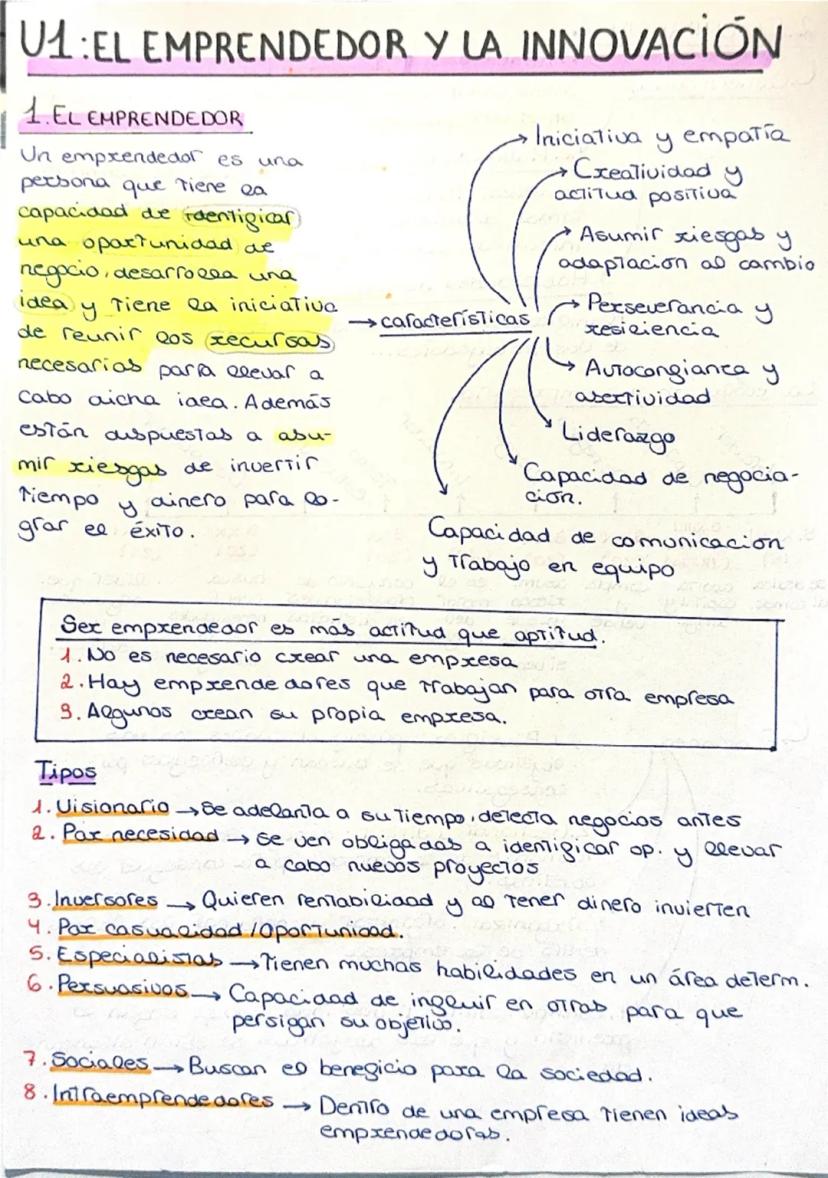 U1:EL EMPRENDEDOR Y LA INNOVACIÓN
1. EL EMPRENDEDOR
Un emprendedor es una
persona que tiene la
capacidad de identificar
una oportunidad de
negocio, desarrolla una
idea y tiene la iniciativa
de reunir los recursos
necesarios para llevar a
cabo dicha idea. Además
están dispuestas a asu-
mir riesgos de invertir
tiempo y dinero para lo-
grar el éxito.
→ características
→ Iniciativa y empatía
→ Creatividad y
actitud positiva
→ Asumir riesgos y
adaptacion al cambio
→ Perseverancia y
resiciencia
→ Autoconfianza y
asertividad
Liderazgo
Capacidad de negocia-
cion.
Capacidad de comunicacion
y trabajo en equipo
Ser emprendedor es más actitud que aptitud.
1. No es necesario crear una empresa
2. Hay emprendedores que trabajan para otra empresa
3. Algunos crean su propia empresa.
Tipos
1. Visionario → Se adelanta a su tiempo, detecta negocios antes
2. Por necesidad → Se ven obligados a identificar op. y llevar
a cabo nuevos proyectos
3. Inversores → Quieren rentabilidad y al tener dinero invierten
4. Por casualidad / Oportunidad.
5. Especialistas → Tienen muchas habilidades en un área determ.
6. Persuasivos → Capacidad de influir en otros para que
persigan su objetivo.
7. Sociales → Buscan el beneficio para la sociedad.
8. Intraemprendedores → Dentro de una empresa tienen ideas
emprendedoras.